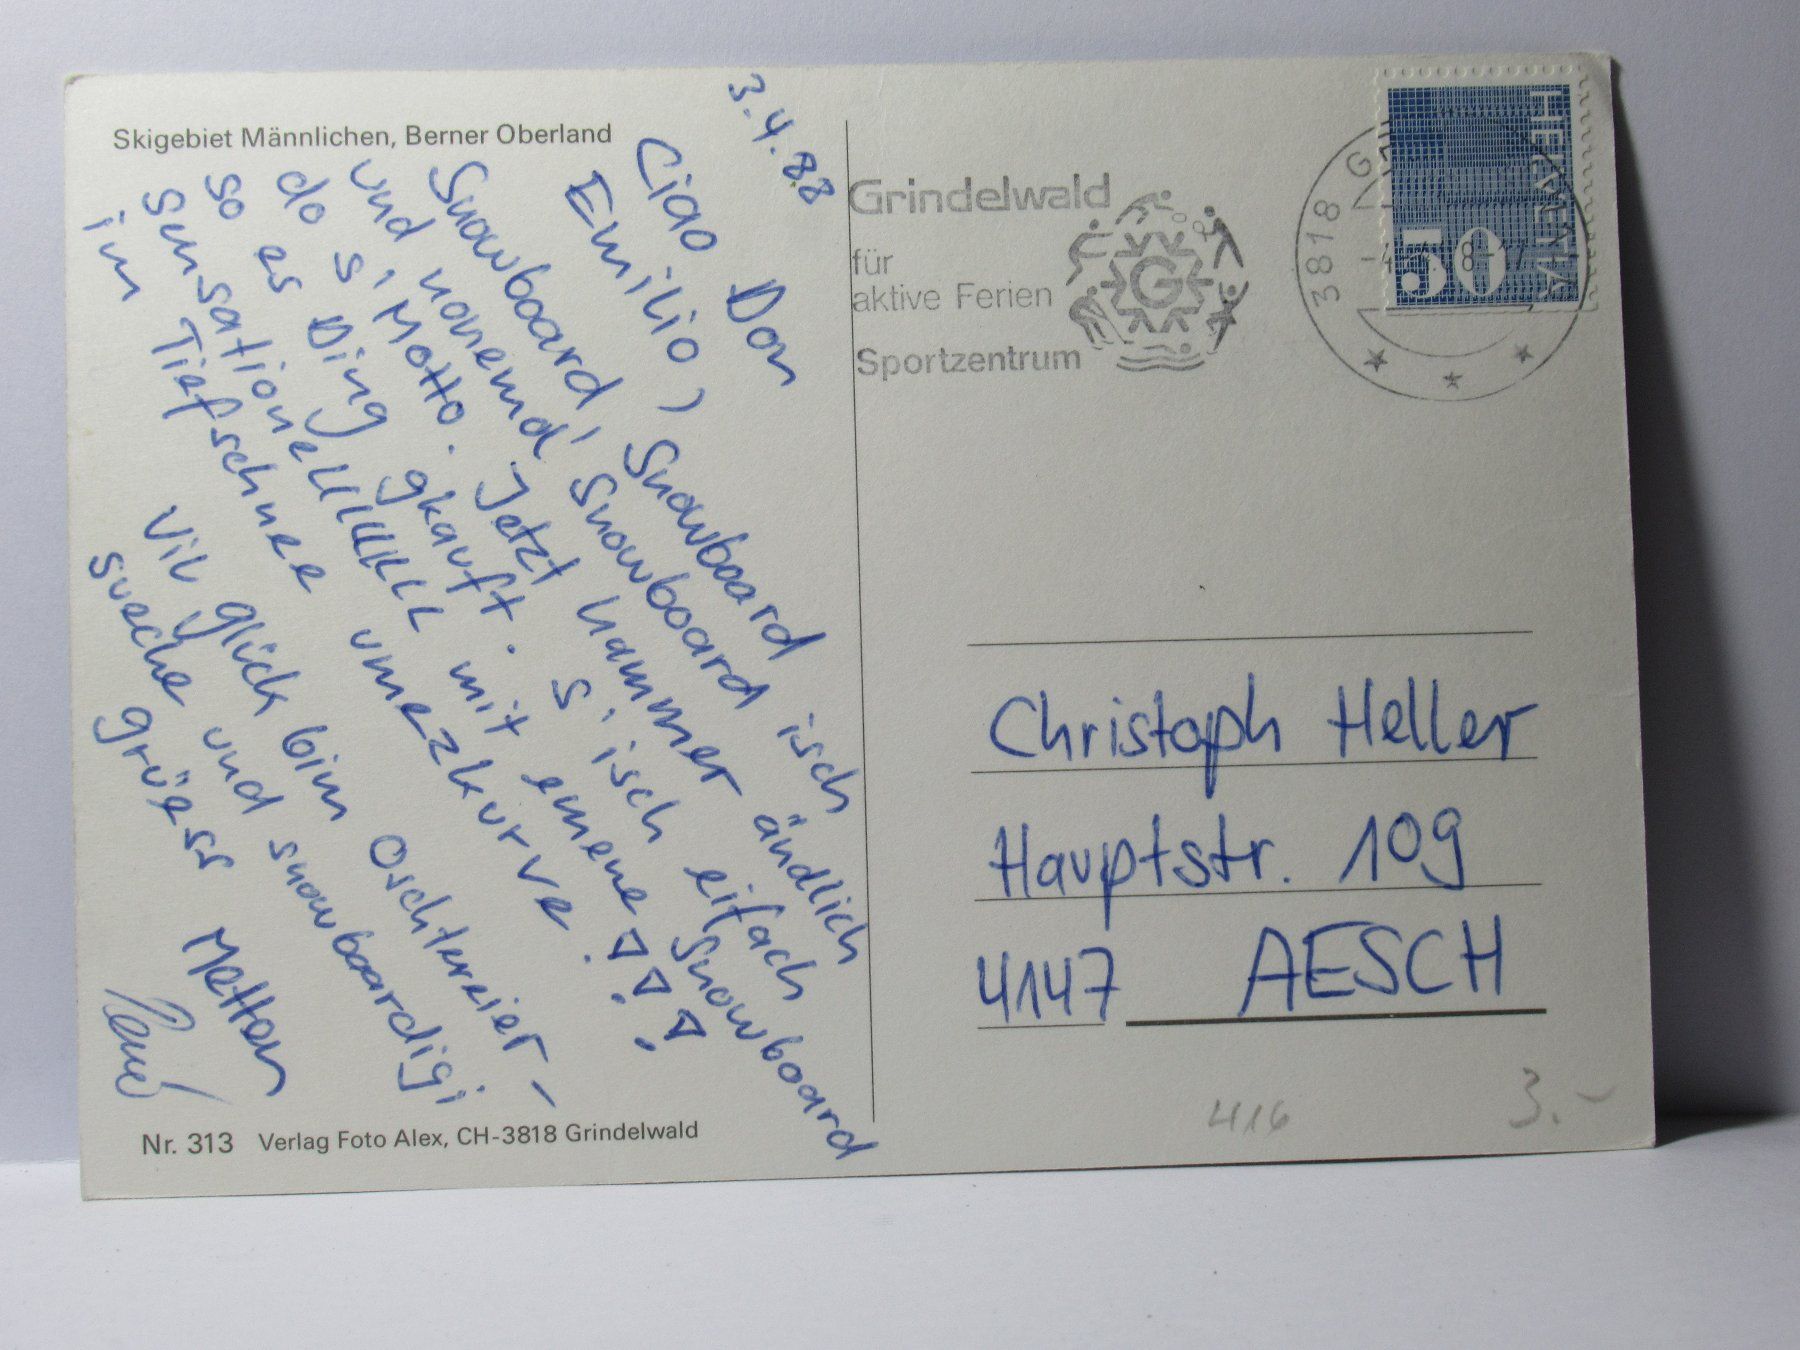 Skigebiet Männlichen, Berner Oberland
3.4.88
Ciao Don
Emilio,
Snowboard, Snowboard
und nonemol Snowboard isch
do s'Motto. Jetzt hammer ändlich
so es Ding gkauft. s'isch eifach
sensationellllllll mit emene Snowboard
im Tiefschnee umezkurve!!!
Vil glück bim Oschtereier-
sueche und snowboardigi
grüess
Nr. 313 Verlag Foto Alex, CH-3818 Grindelwald
Grindelwald
für
aktive Ferien
Sportzentrum
G
3818
HELVETIA
50
Christoph Heller
Hauptstr. 109
4147 AESCH
416
3.-